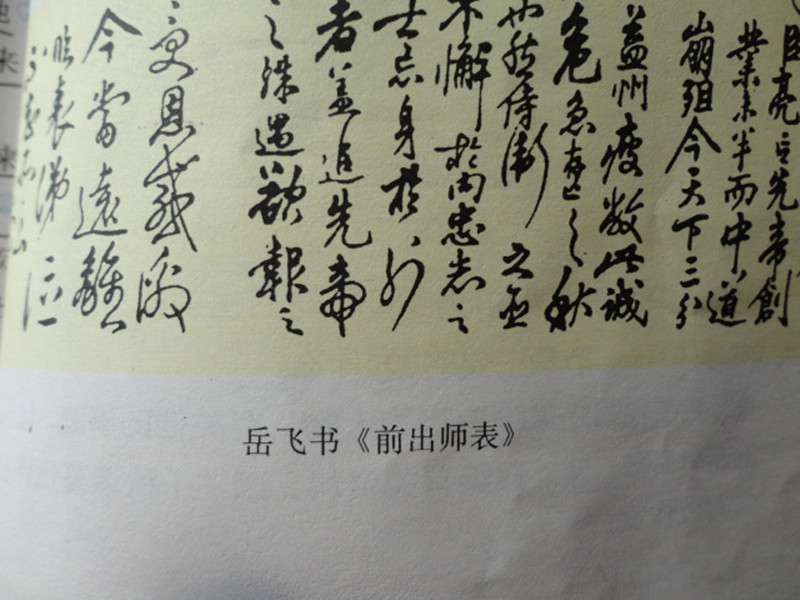 臣亮言先帝創
業未半而中道
崩殂今天下三分
益州疲敝此誠
危急存亡之秋
也然侍衛之臣
不懈於內忠志之
士忘身於外
者蓋追先帝
之殊遇欲報之
受恩感激
今當遠離
臨表涕泣
岳飞书《前出师表》